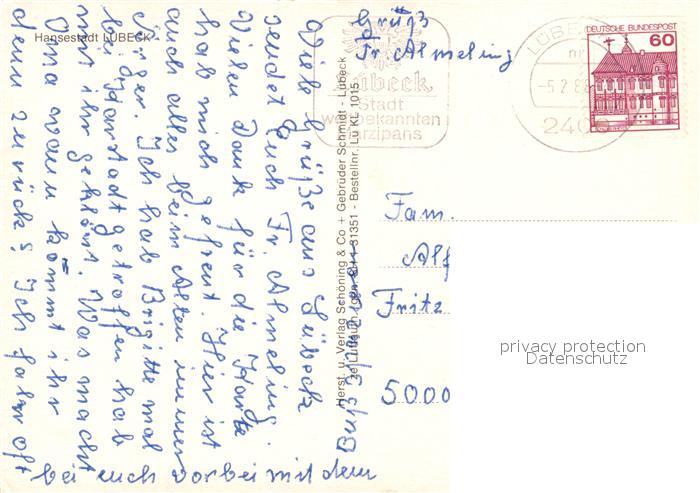 Hansestadt LÜBECK
Viele Grüße aus Lübeck
sendet Euch Fr. Almeling.
Vielen Dank für die Karte
hab mich gefreut. Hier ist
auch alles beim Alten immer
Ich hab Brigitte mal
bei Karstadt getroffen hab
mit ihr geklönt. Was macht
Oma wann kommt ihr
denn zurück? Ich fahr oft
bei euch vorbei mit dem
Bus
Gruß
Fr. Almeling
Herst. u. Verlag Schöning & Co + Gebrüder Schmidt - Lübeck
31351 - Bestellnr. Lü KL 1015
Lübeck
Stadt
des weltbekannten
Marzipans
LÜBECK
-5.2.88
240
DEUTSCHE BUNDESPOST
60
Fam.
Alf
Fritz
5000
privacy protection
Datenschutz